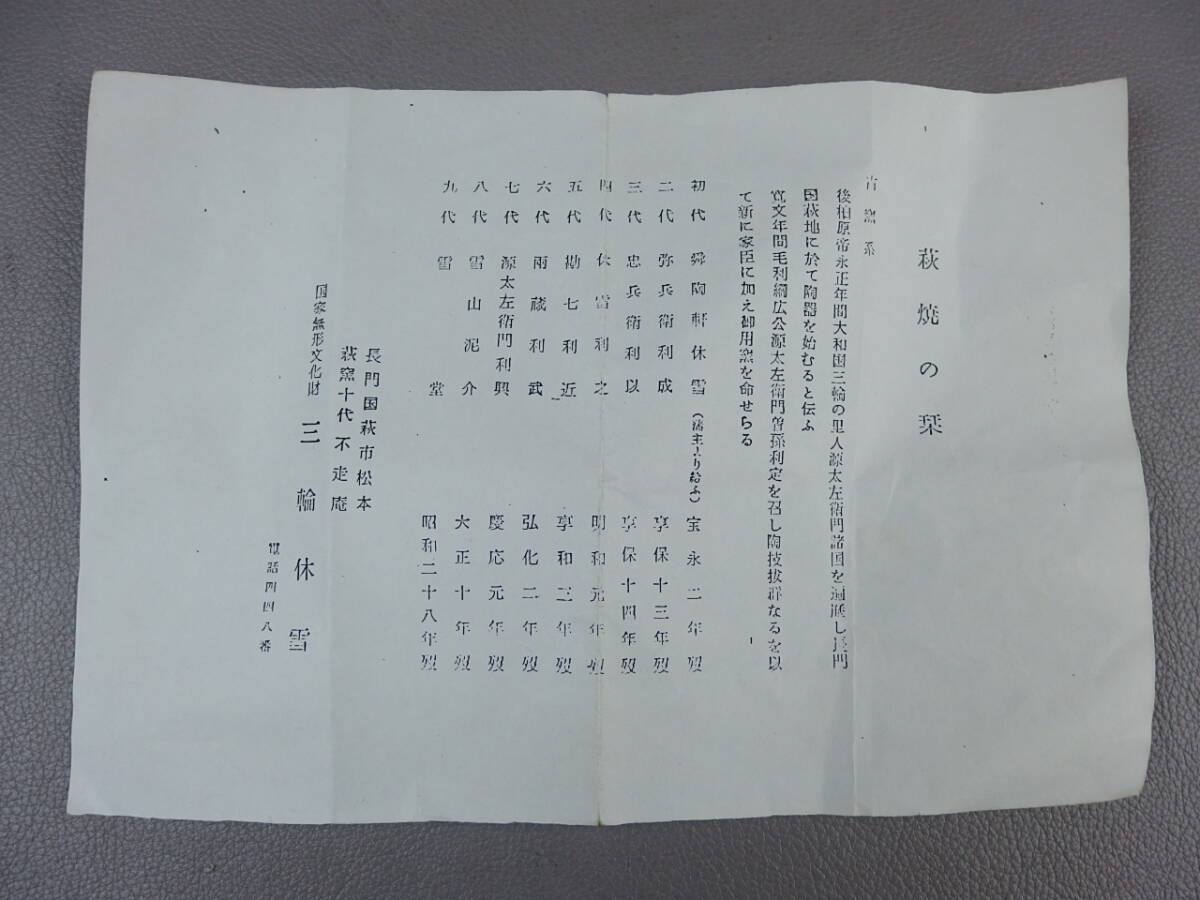 萩焼の栞
古窯系
後柏原帝永正年間大和国三輪の里人源太左衛門諸国を遍歴し長門
国萩地に於て陶器を始むると伝ふ
寛文年間毛利綱広公源太左衛門曽孫利定を召し陶技抜群なるを以
て新に家臣に加え御用窯を命せらる
初代 舜陶軒休雪(藩主より給ふ) 宝永二年歿
二代 弥兵衛利成 享保十三年歿
三代 忠兵衛利以 享保十四年歿
四代 休雪利之 明和元年歿
五代 勘七利近 享和三年歿
六代 雨蔵利武 弘化二年歿
七代 源太左衛門利興 慶応元年歿
八代 雪山泥介 大正十年歿
九代 雪堂 昭和二十八年歿
長門国萩市松本
萩窯十代不走庵
国家無形文化財 三輪休雪
電話四四八番